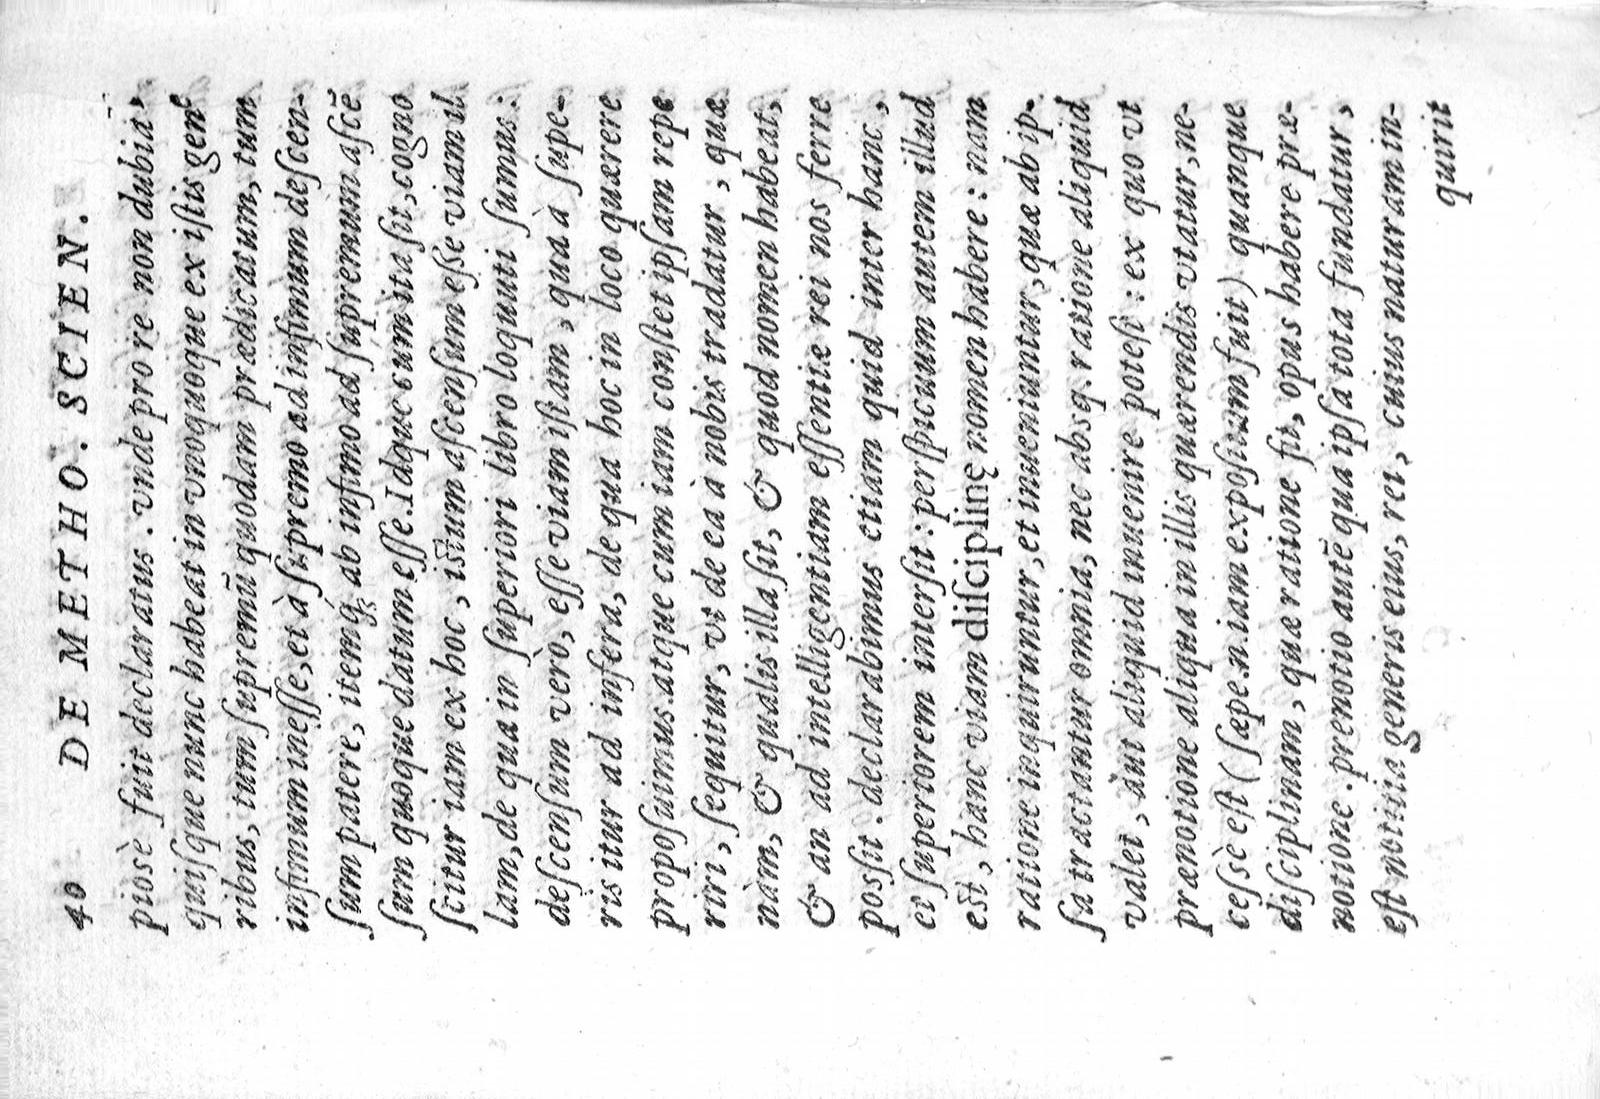 40 DE METHO. SCIEN.
piosè fuit declaratus. vnde pro re non dubia,
quiſque nunc habeat in vnoquoque ex iſtis gene
ribus, tum ſupremũ quodam prædicatum, tum
infimum ineſſe, et à ſupremo ad infimum deſcen-
ſum patere, itemq́; ab infimo ad ſupremum aſcẽ
ſum quoque datum eſſe. Idque cum ita ſit, cogno
ſcitur iam ex hoc, iſtum aſcenſum eſſe viam il
lam, de qua in ſuperiori libro loquuti ſumus:
deſcenſum verò, eſſe viam iſtam, qua à ſupe-
ris itur ad infera, de qua hoc in loco quærere
propoſuimus. atque cum iam conſtet ipſam repe
riri, ſequitur, vt de ea à nobis tradatur, quæ
nàm, & qualis illa ſit, & quod nomen habeat,
& an ad intelligentiam eſſentiæ rei nos ferre
posſit. declarabimus etiam quid inter hanc,
et ſuperiorem interſit: perſpicuum autem illud
eſt, hanc viam diſciplinę nomen habere: nam
ratione inquiruntur, et inueniuntur, quæ ab ip-
ſa tractantur omnia, nec absq. ratione aliquid
valet, aut aliquid inuenire poteſt: ex quo vt
prænotione aliqua in illis quærendis vtatur, ne-
ceſsè eſt (ſæpe.n.iam expoſitum fuit) quanque
diſciplinam, quæ ratione fit, opus habere præ-
notione. prenotio autẽ qua ipſa tota fundatur,
eſt notitia generis eius, rei, cuius naturam in-
quirit